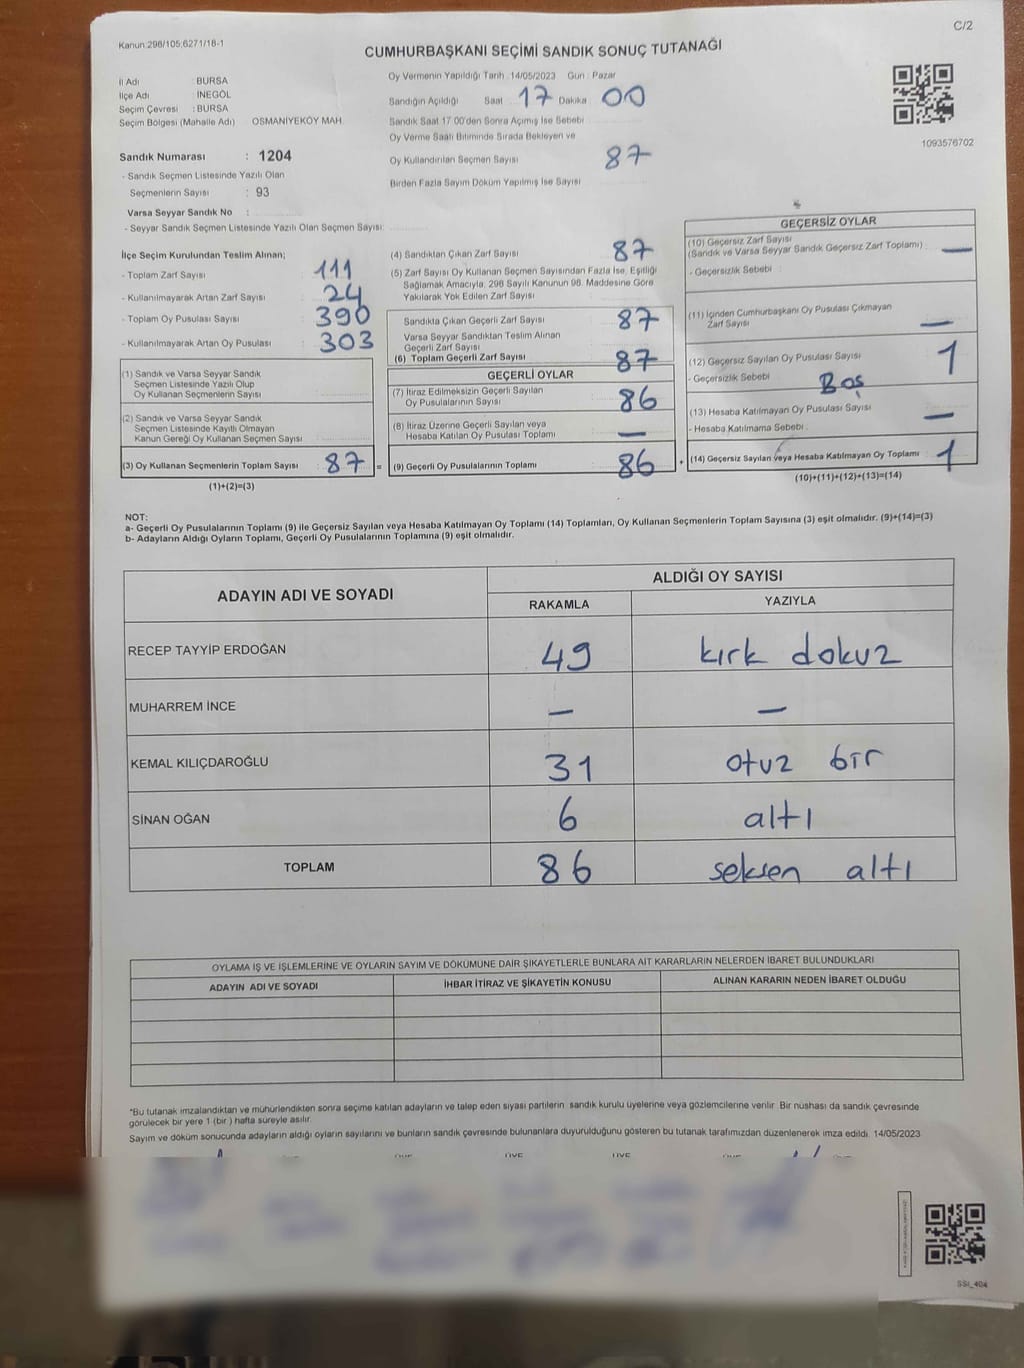 C/2
Kanun:298/105;6271/18-1
CUMHURBAŞKANI SEÇİMİ SANDIK SONUÇ TUTANAĞI
İl Adı : BURSA
İlçe Adı : İNEGÖL
Seçim Çevresi : BURSA
Seçim Bölgesi (Mahalle Adı) OSMANİYEKÖY MAH.
Sandık Numarası : 1204
- Sandık Seçmen Listesinde Yazılı Olan
Seçmenlerin Sayısı : 93
Varsa Seyyar Sandık No :
- Seyyar Sandık Seçmen Listesinde Yazılı Olan Seçmen Sayısı:
Oy Vermenin Yapıldığı Tarih :14/05/2023 Gün : Pazar
Sandığın Açıldığı Saat 17 Dakika 00
Sandık Saat 17.00'den Sonra Açılmış İse Sebebi
Oy Verme Saati Bitiminde Sırada Bekleyen ve
Oy Kullandırılan Seçmen Sayısı 87
Birden Fazla Sayım Döküm Yapılmış İse Sayısı
1093576702
İlçe Seçim Kurulundan Teslim Alınan;
- Toplam Zarf Sayısı 111
- Kullanılmayarak Artan Zarf Sayısı 24
- Toplam Oy Pusulası Sayısı 390
- Kullanılmayarak Artan Oy Pusulası 303
(1) Sandık ve Varsa Seyyar Sandık
Seçmen Listesinde Yazılı Olup
Oy Kullanan Seçmenlerin Sayısı
(2) Sandık ve Varsa Seyyar Sandık
Seçmen Listesinde Kayıtlı Olmayan
Kanun Gereği Oy Kullanan Seçmen Sayısı
(3) Oy Kullanan Seçmenlerin Toplam Sayısı : 87 =
(1)+(2)=(3)
(4) Sandıktan Çıkan Zarf Sayısı 87
(5) Zarf Sayısı Oy Kullanan Seçmen Sayısından Fazla İse, Eşitliği
Sağlamak Amacıyla, 298 Sayılı Kanunun 98. Maddesine Göre
Yakılarak Yok Edilen Zarf Sayısı
Sandıkta Çıkan Geçerli Zarf Sayısı 87
Varsa Seyyar Sandıktan Teslim Alınan
Geçerli Zarf Sayısı
(6) Toplam Geçerli Zarf Sayısı 87
GEÇERLİ OYLAR
(7) İtiraz Edilmeksizin Geçerli Sayılan
Oy Pusulalarının Sayısı 86
(8) İtiraz Üzerine Geçerli Sayılan veya
Hesaba Katılan Oy Pusulası Toplamı —
(9) Geçerli Oy Pusulalarının Toplamı 86 +
GEÇERSİZ OYLAR
(10) Geçersiz Zarf Sayısı
(Sandık ve Varsa Seyyar Sandık Geçersiz Zarf Toplamı) : —
- Geçersizlik Sebebi :
(11) İçinden Cumhurbaşkanı Oy Pusulası Çıkmayan
Zarf Sayısı —
(12) Geçersiz Sayılan Oy Pusulası Sayısı 1
- Geçersizlik Sebebi Boş
(13) Hesaba Katılmayan Oy Pusulası Sayısı —
- Hesaba Katılmama Sebebi :
(14) Geçersiz Sayılan veya Hesaba Katılmayan Oy Toplamı : 1
(10)+(11)+(12)+(13)=(14)
NOT:
a- Geçerli Oy Pusulalarının Toplamı (9) ile Geçersiz Sayılan veya Hesaba Katılmayan Oy Toplamı (14) Toplamları, Oy Kullanan Seçmenlerin Toplam Sayısına (3) eşit olmalıdır. (9)+(14)=(3)
b- Adayların Aldığı Oyların Toplamı, Geçerli Oy Pusulalarının Toplamına (9) eşit olmalıdır.
ADAYIN ADI VE SOYADI ALDIĞI OY SAYISI
RAKAMLA YAZIYLA
RECEP TAYYİP ERDOĞAN 49 kırk dokuz
MUHARREM İNCE — —
KEMAL KILIÇDAROĞLU 31 otuz bir
SİNAN OĞAN 6 altı
TOPLAM 86 seksen altı
OYLAMA İŞ VE İŞLEMLERİNE VE OYLARIN SAYIM VE DÖKÜMÜNE DAİR ŞİKAYETLERLE BUNLARA AİT KARARLARIN NELERDEN İBARET BULUNDUKLARI
ADAYIN ADI VE SOYADI İHBAR İTİRAZ VE ŞİKAYETİN KONUSU ALINAN KARARIN NEDEN İBARET OLDUĞU
*Bu tutanak imzalandıktan ve mühürlendikten sonra seçime katılan adayların ve talep eden siyasi partilerin sandık kurulu üyelerine veya gözlemcilerine verilir. Bir nüshası da sandık çevresinde
görülecek bir yere 1 (bir ) hafta süreyle asılır.
Sayım ve döküm sonucunda adayların aldığı oyların sayılarını ve bunların sandık çevresinde bulunanlara duyurulduğunu gösteren bu tutanak tarafımızdan düzenlenerek imza edildi. 14/05/2023
SSI_404